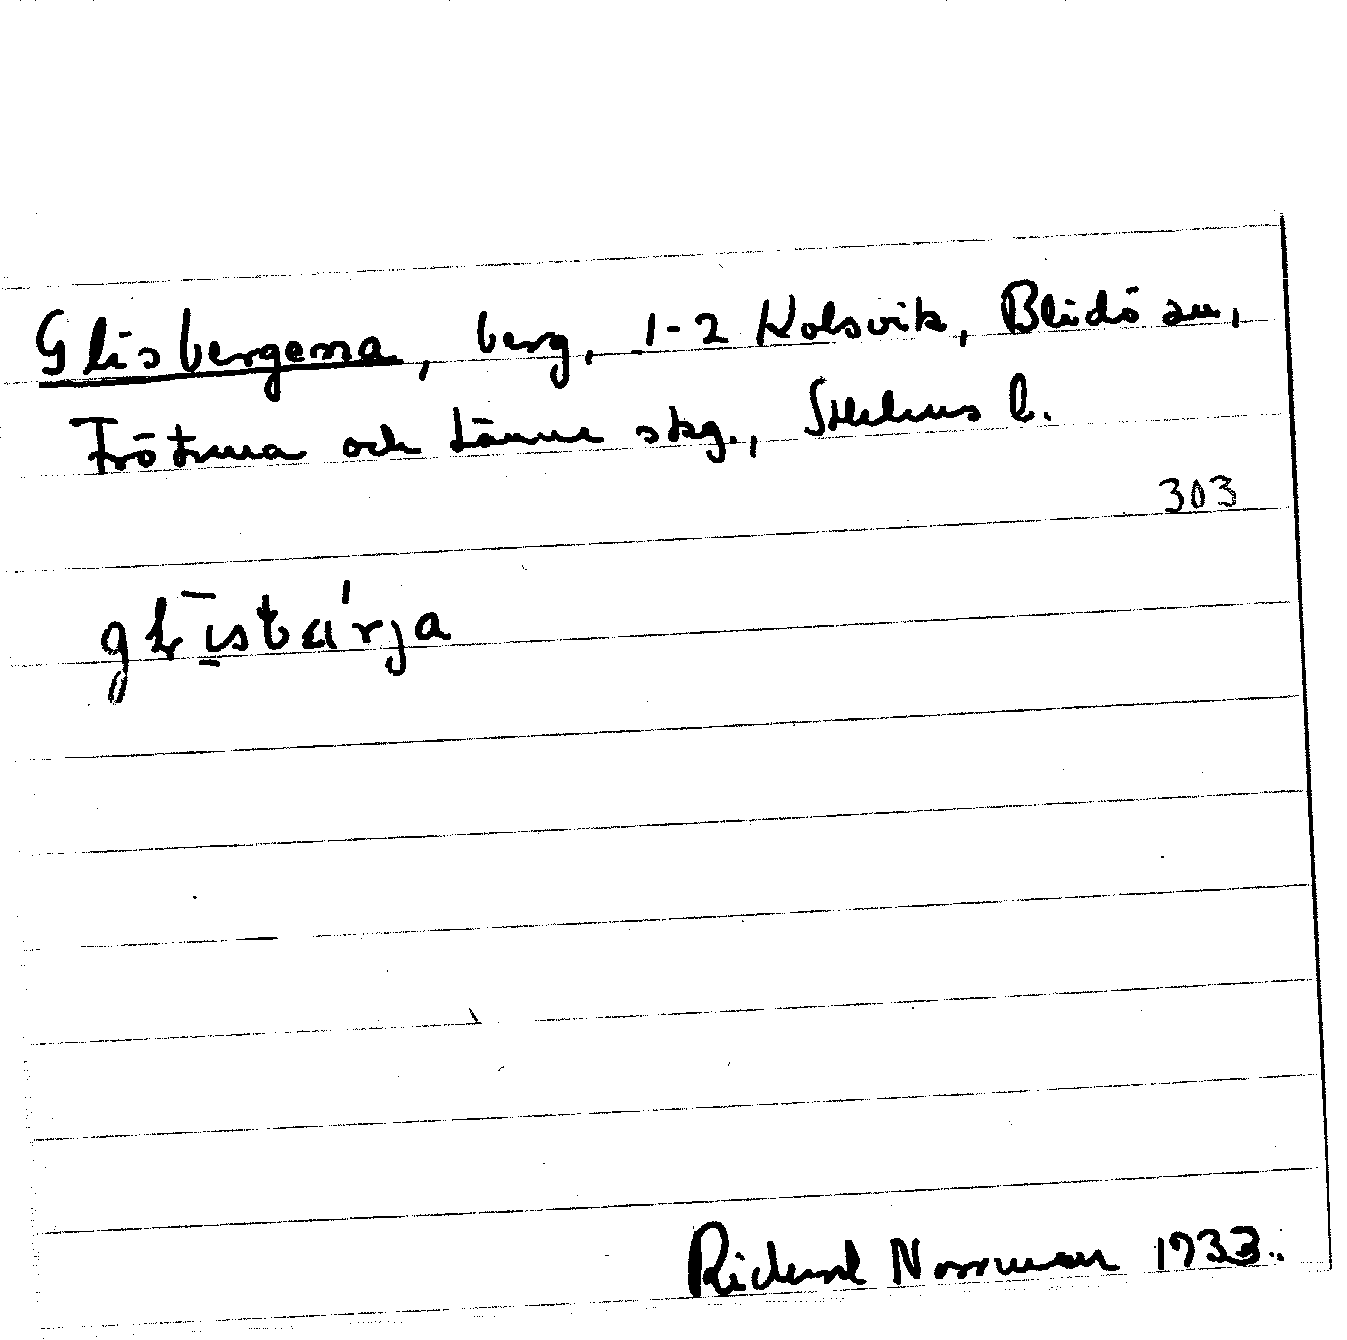 Glisbergena, berg, 1-2 Kolsvik, Blidö sn,
Frötuna och Länna skg., Sthlms l.
303
Rickard Norrman 1933.